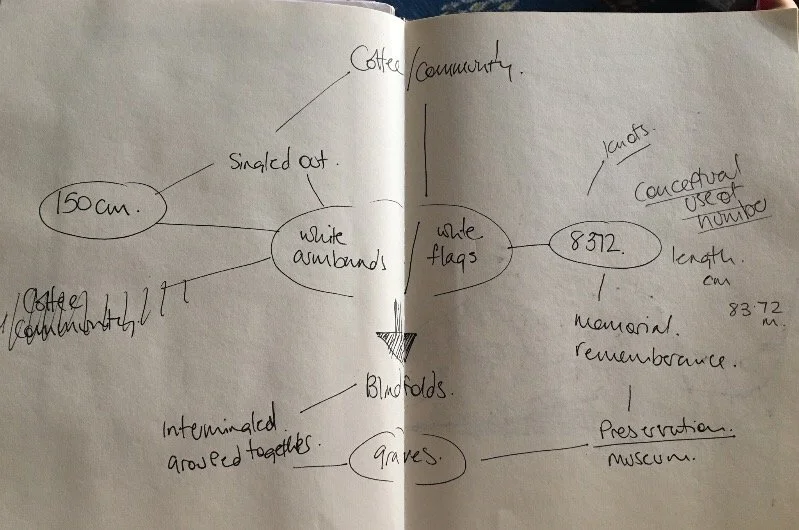 Coffee/community.
Singled out.
150cm.
white
armbands
/
white
flags
8372.
knots.
Conceptual
use of
number
length.
cm
83.72
m.
Coffee
/community
memorial.
rememberance.
Blindfolds.
Intermingled.
grouped together.
graves.
Preservation.
museum.